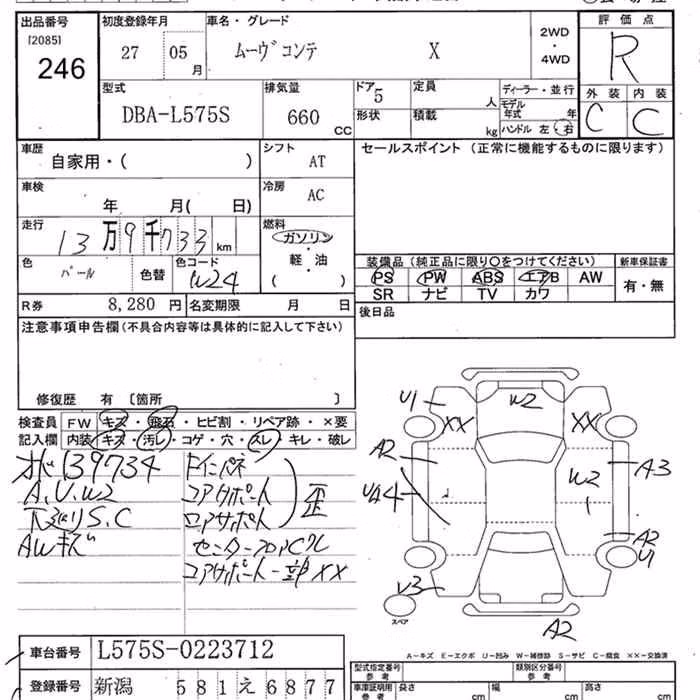 出品番号 初度登録年月 車名・グレード 2WD ・ 4WD 評価点
[2085] 246 27 05月 ムーヴコンテ X R
型式 排気量 ドア 5 定員 人 ディーラー・並行 外装 内装
DBA-L575S 660 CC 形状 積載 kg モデル年式 年 C C
ハンドル 左・右
車歴 自家用・( ) シフト AT セールスポイント(正常に機能するものに限ります)
車検 年 月( 日) 冷房 AC
走行 13万9千733km 燃料 ガソリン
軽・油
( )
色 パール 色替 色コード W24
装備品(純正品に限り○をつけてください) 新車保証書
PS PW ABS エアB AW 有・無
SR ナビ TV カワ
R券 8,280 円 名変期限 月 日 後日品
注意事項申告欄(不具合内容等は具体的に記入して下さい)
修復歴 有 〔箇所 〕
検査員 FW キズ・飛石・ヒビ割・リペア跡・×要
記入欄 内装 キズ・汚レ・コゲ・穴・スレ・キレ・破レ
139734
A.U.W2
下廻りS.C
AWキズ
コアサポート
ロアサポート
歪
センターフロアCル
コアサポート一部XX
U1 W2
XX XX
A2 W2 A3
UA4
A2
U1
V3
スペア
A2
A-キズ E-エクボ U-凹み W-補修跡 S-サビ C-腐食 ××-交換済
車台番号 L575S-0223712
登録番号 新潟 581 え 6877
型式指定番号 参考 類別区分番号 参考
車庫証明用 参考 長さ cm 幅 cm 高さ cm